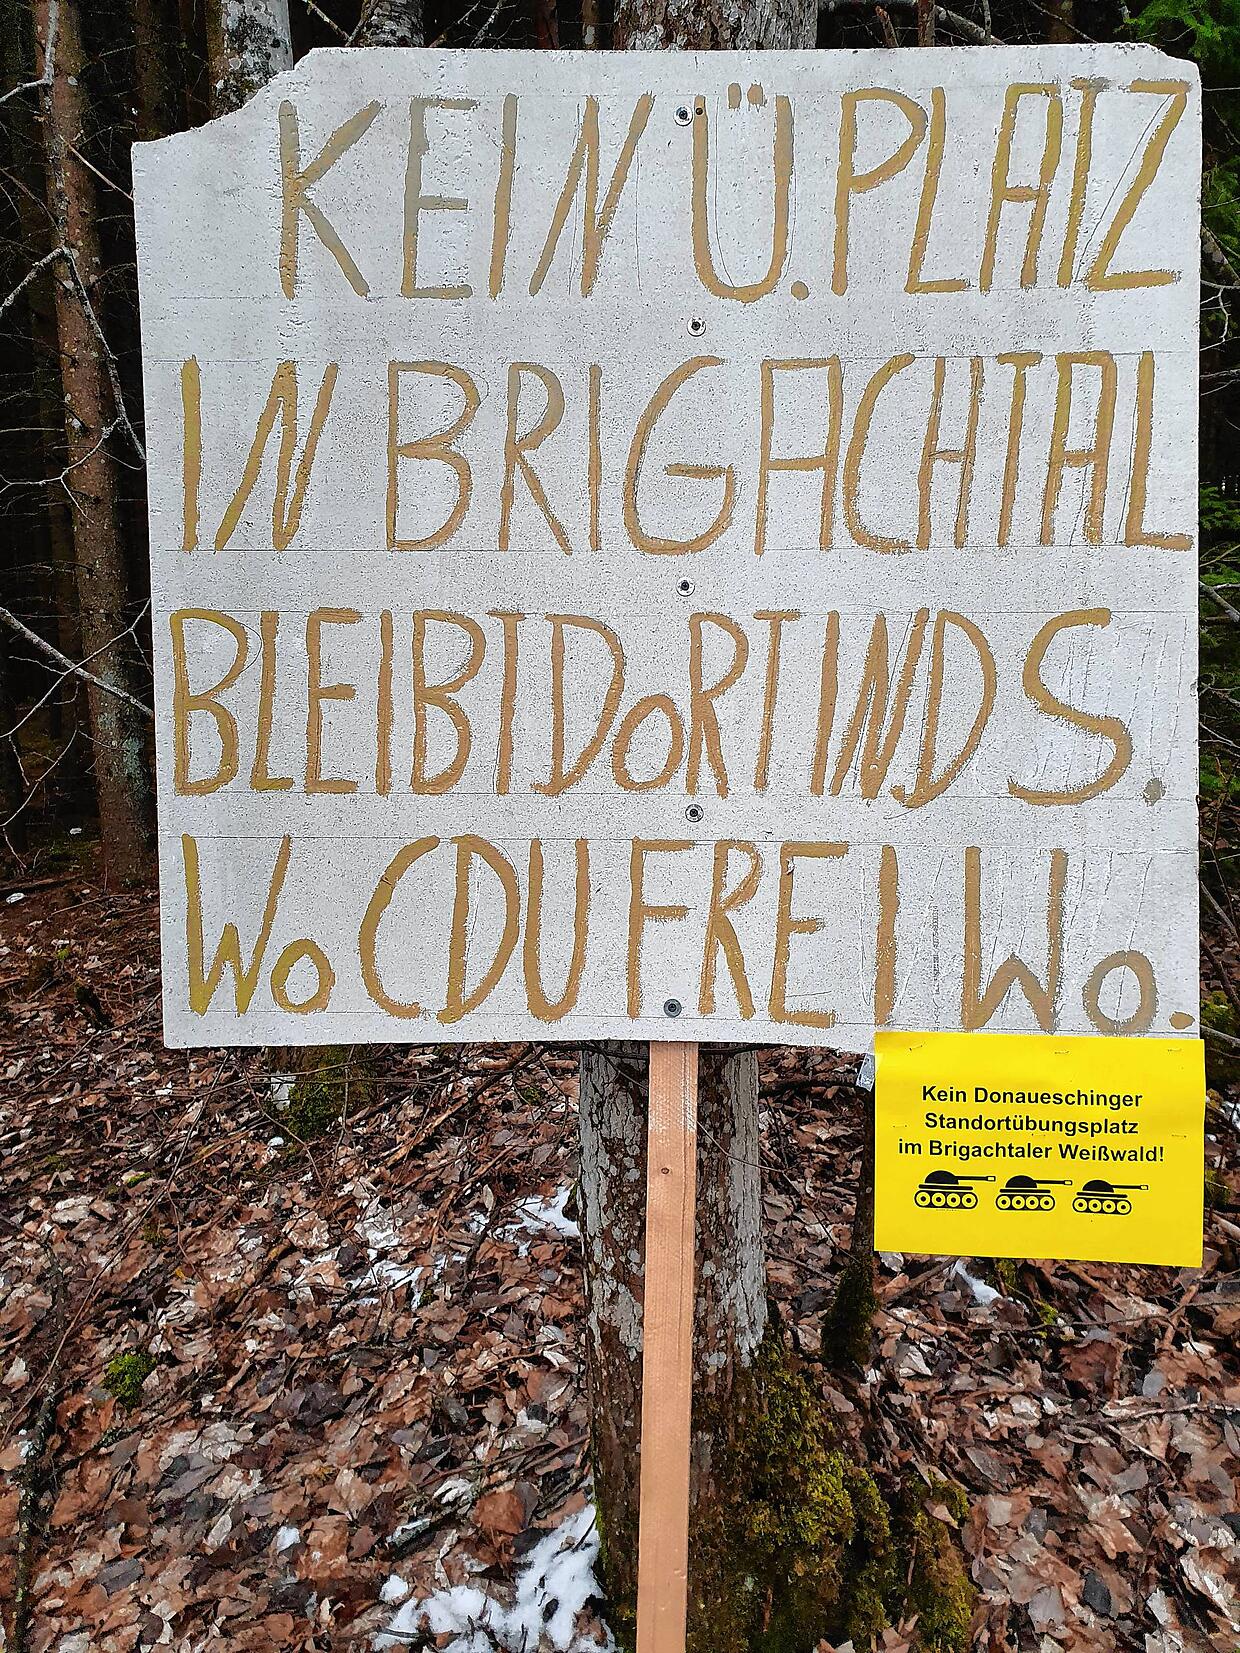 KEIN Ü.PLATZ
IN BRIGACHTAL
BLEIBT DoRT IN DS.
Wo CDU FREI Wo.
Kein Donaueschinger
Standortübungsplatz
im Brigachtaler Weißwald!